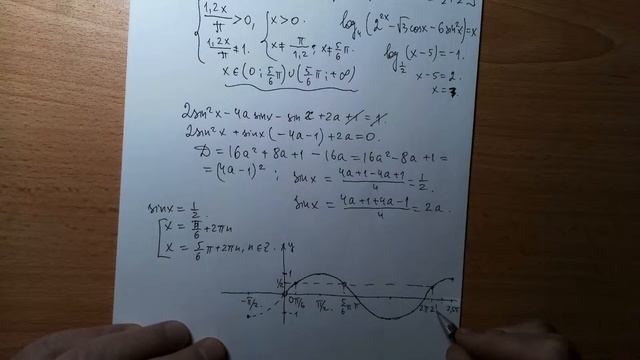 { 1,2x/π > 0, { x > 0.
1,2x/π ≠ 1. x ≠ π/1,2; x ≠ 5/6 π.
x ∈ (0; 5/6 π) ∪ (5/6 π; +∞)
log₄ (2^2x − √3 cosx − 6 sin²x) = x
log_1/2 (x−5) = −1.
x−5 = 2.
x = 7.
2sin²x − 4a sinx − sin x + 2a + 1 = 1.
2sin²x + sinx (−4a−1) + 2a = 0.
D = 16a² + 8a + 1 − 16a = 16a² − 8a + 1 =
= (4a−1)²; sinx = (4a+1−4a+1)/4 = 1/2.
sinx = (4a+1+4a−1)/4 = 2a.
sinx = 1/2
[ x = π/6 + 2πn
x = 5/6 π + 2πn, n ∈ Z.
y
1
1/2
−π/2 0 π/6 π/2 5/6 π π 2π 2,5π
−1